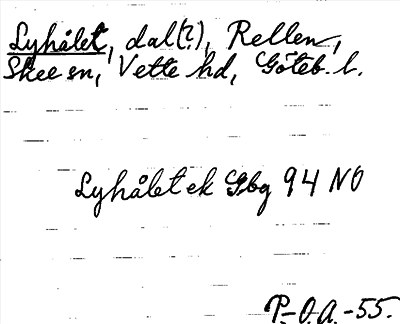 Lyhålet, dal(?), Rellen,
Skee sn, Vette hd, Göteb. l.
Lyhålet ek Gbg 94 NO
P.-O.A.-55.